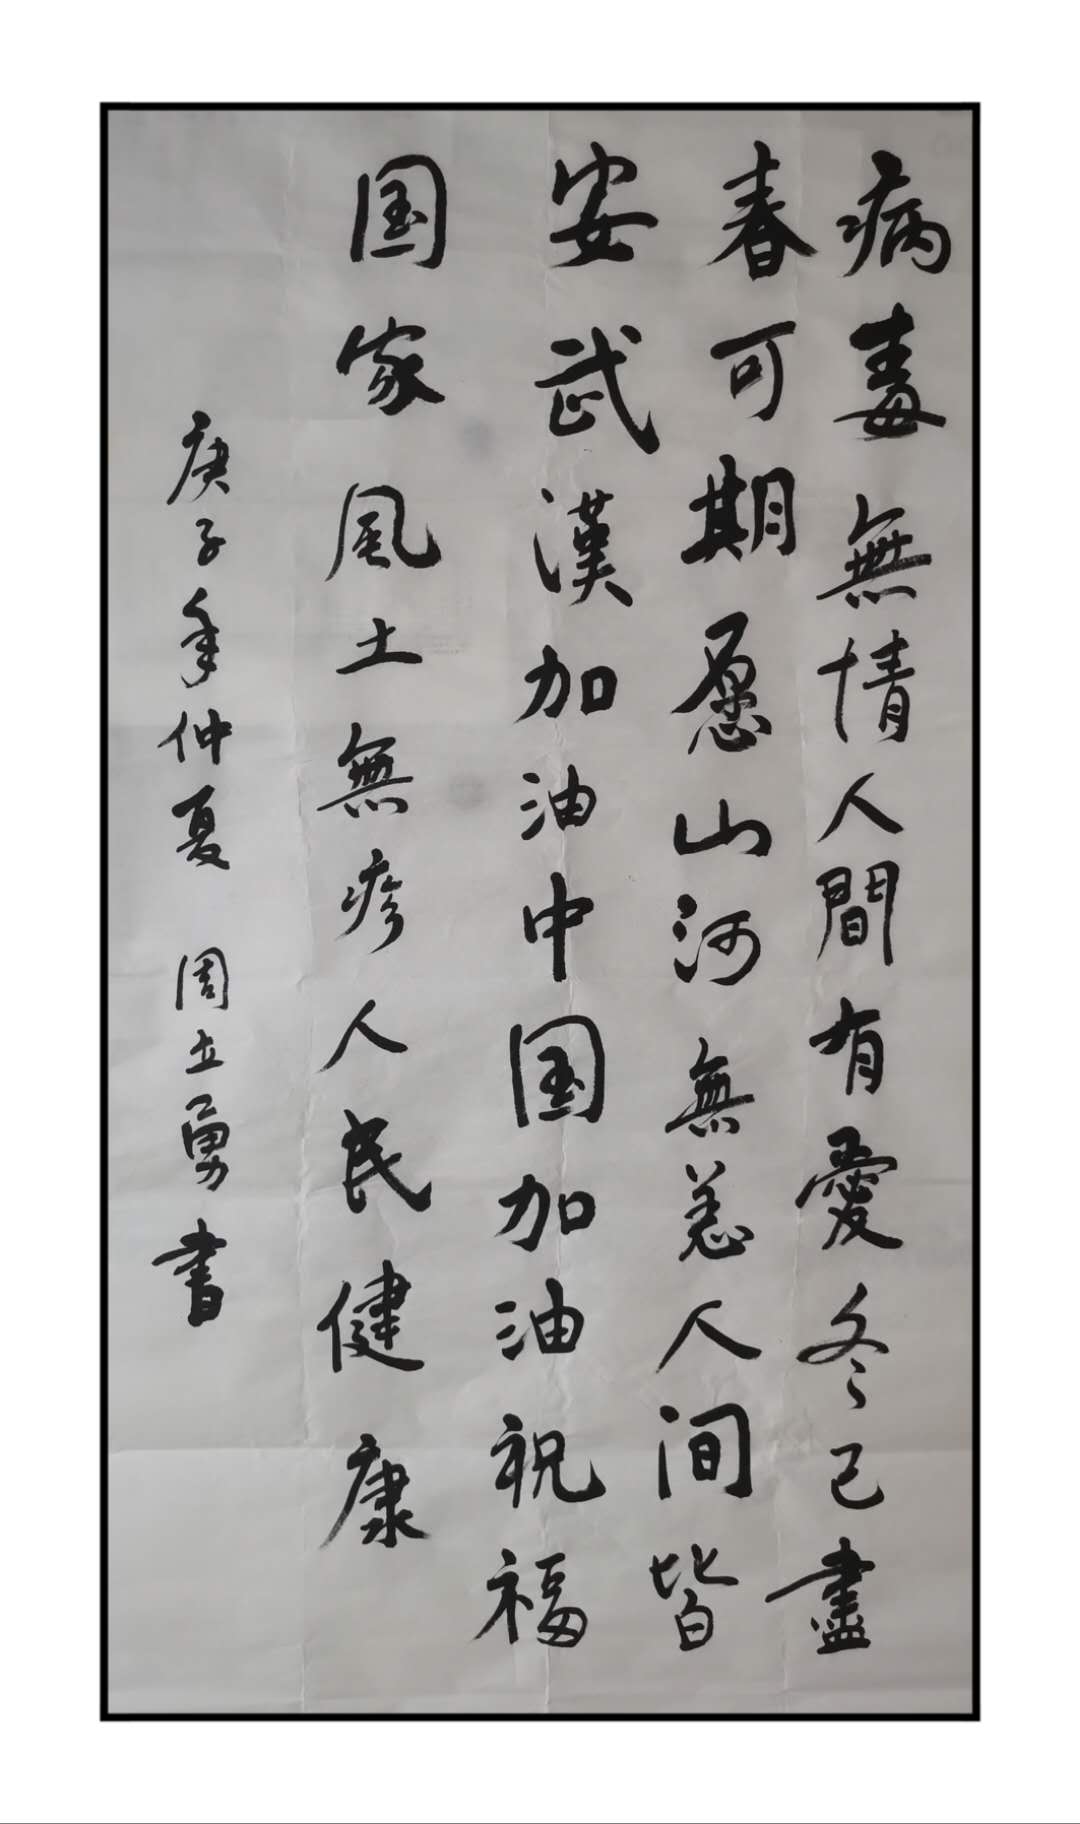 病毒無情人間有愛冬已盡
春可期愿山河無恙人间皆
安武漢加油中国加油祝福
国家風土無疹人民健康
庚子年仲夏 周立勇書